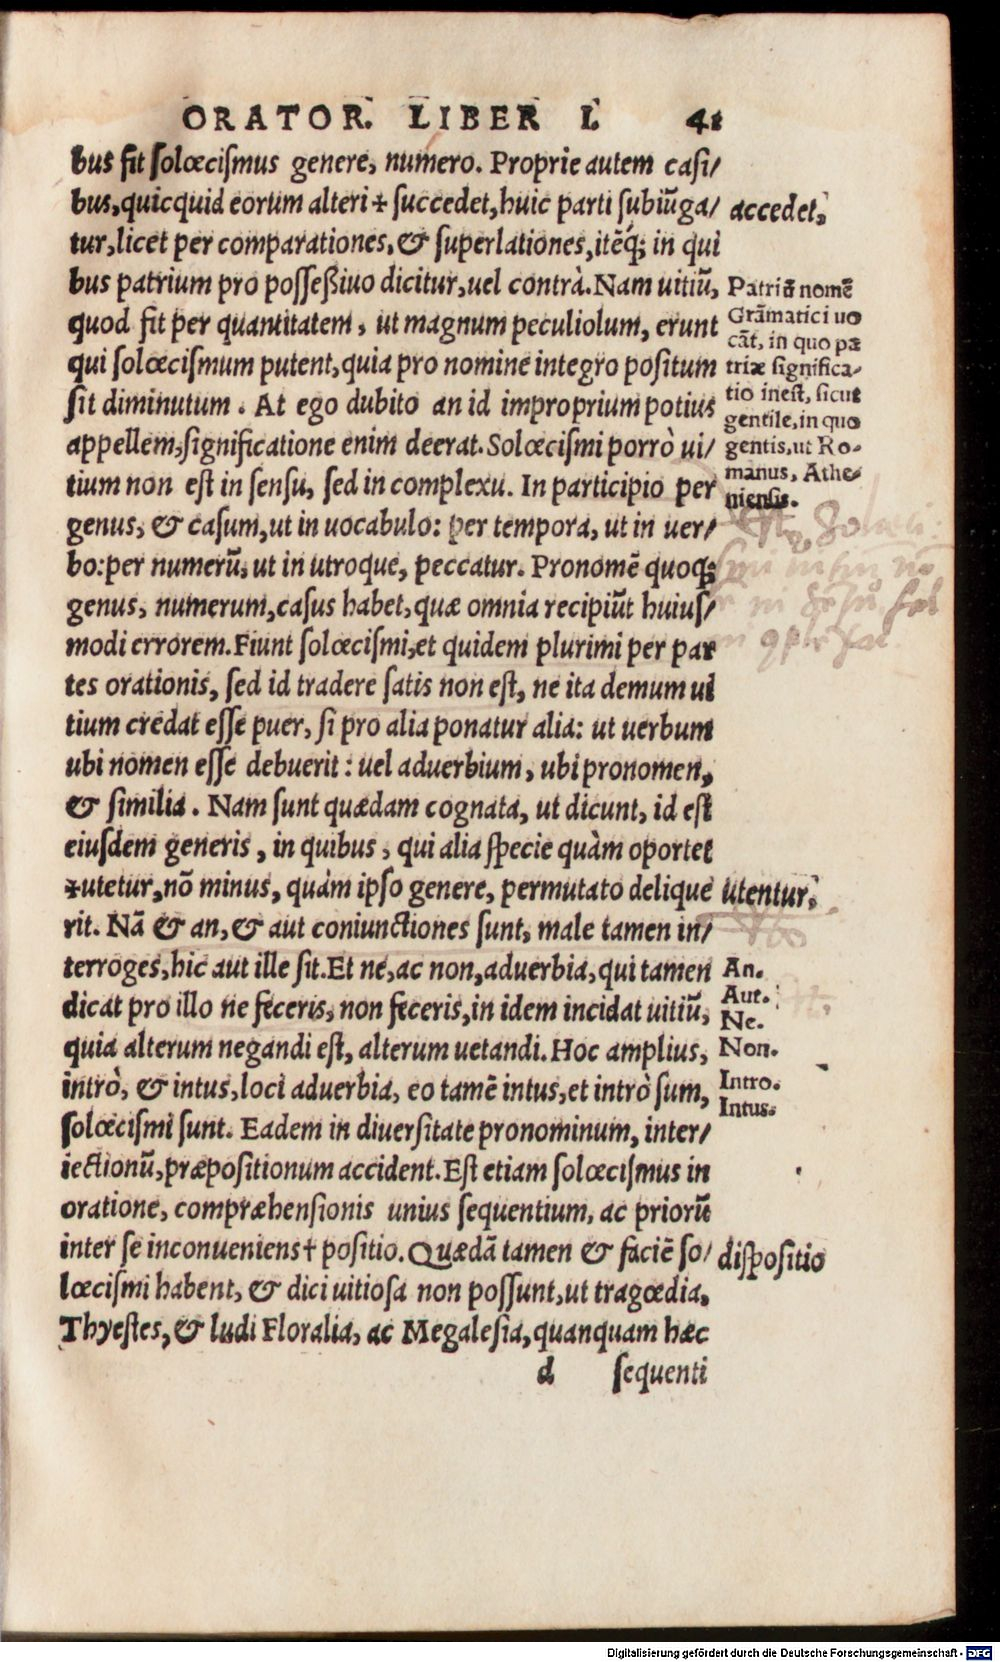 ORATOR. LIBER I. 41
bus fit ſolœciſmus genere, numero. Proprie autem caſi/
bus, quicquid eorum alteri ☩ ſuccedet, huic parti ſubiũga/
accedet,
tur, licet per comparationes, & ſuperlationes, itẽq́; in qui
bus patrium pro poſſeßiuo dicitur, uel contrà. Nam uitiũ,
quod fit per quantitatem, ut magnum peculiolum, erunt
qui ſolœciſmum putent, quia pro nomine integro poſitum
ſit diminutum. At ego dubito an id improprium potius
appellem, ſignificatione enim deerat. Solœciſmi porrò ui/
tium non eſt in ſenſu, ſed in complexu. In participio per
Patriũ nomẽ
Grãmatici uo
cãt, in quo pa
triæ ſignifica-
tio ineſt, ſicut
gentile, in quo
gentis, ut Ro-
manus, Athe-
nienſis.
genus, & caſum, ut in uocabulo: per tempora, ut in uer/
bo: per numerũ, ut in utroque, peccatur. Pronomẽ quoq;
genus, numerum, caſus habet, quæ omnia recipiũt huiuſ/
modi errorem. Fiunt ſolœciſmi, et quidem plurimi per par
tes orationis, ſed id tradere ſatis non eſt, ne ita demum ui
tium credat eſſe puer, ſi pro alia ponatur alia: ut uerbum
ubi nomen eſſe debuerit: uel aduerbium, ubi pronomen,
& ſimilia. Nam ſunt quædam cognata, ut dicunt, id eſt
eiuſdem generis, in quibus, qui alia ſpecie quàm oportet
☩utetur, nõ minus, quàm ipſo genere, permutato delique
utentur,
rit. Nã & an, & aut coniunctiones ſunt, male tamen in/
terroges, hic aut ille ſit. Et ne, ac non, aduerbia, qui tamen
An.
dicat pro illo ne feceris, non feceris, in idem incidat uitiũ,
Aut.
Ne.
quia alterum negandi eſt, alterum uetandi. Hoc amplius,
Non.
intrò, & intus, loci aduerbia, eo tamẽ intus, et intrò ſum,
Intro.
Intus.
ſolœciſmi ſunt. Eadem in diuerſitate pronominum, inter/
iectionũ, præpoſitionum accident. Eſt etiam ſolœciſmus in
oratione, compræhenſionis unius ſequentium, ac priorũ
inter ſe inconueniens† poſitio. Quædã tamen & faciẽ ſo/
diſpoſitio
lœciſmi habent, & dici uitioſa non poſſunt, ut tragœdia,
Thyeſtes, & ludi Floralia, ac Megaleſia, quanquam hæc
d ſequenti
Digitalisierung gefördert durch die Deutsche Forschungsgemeinschaft - DFG